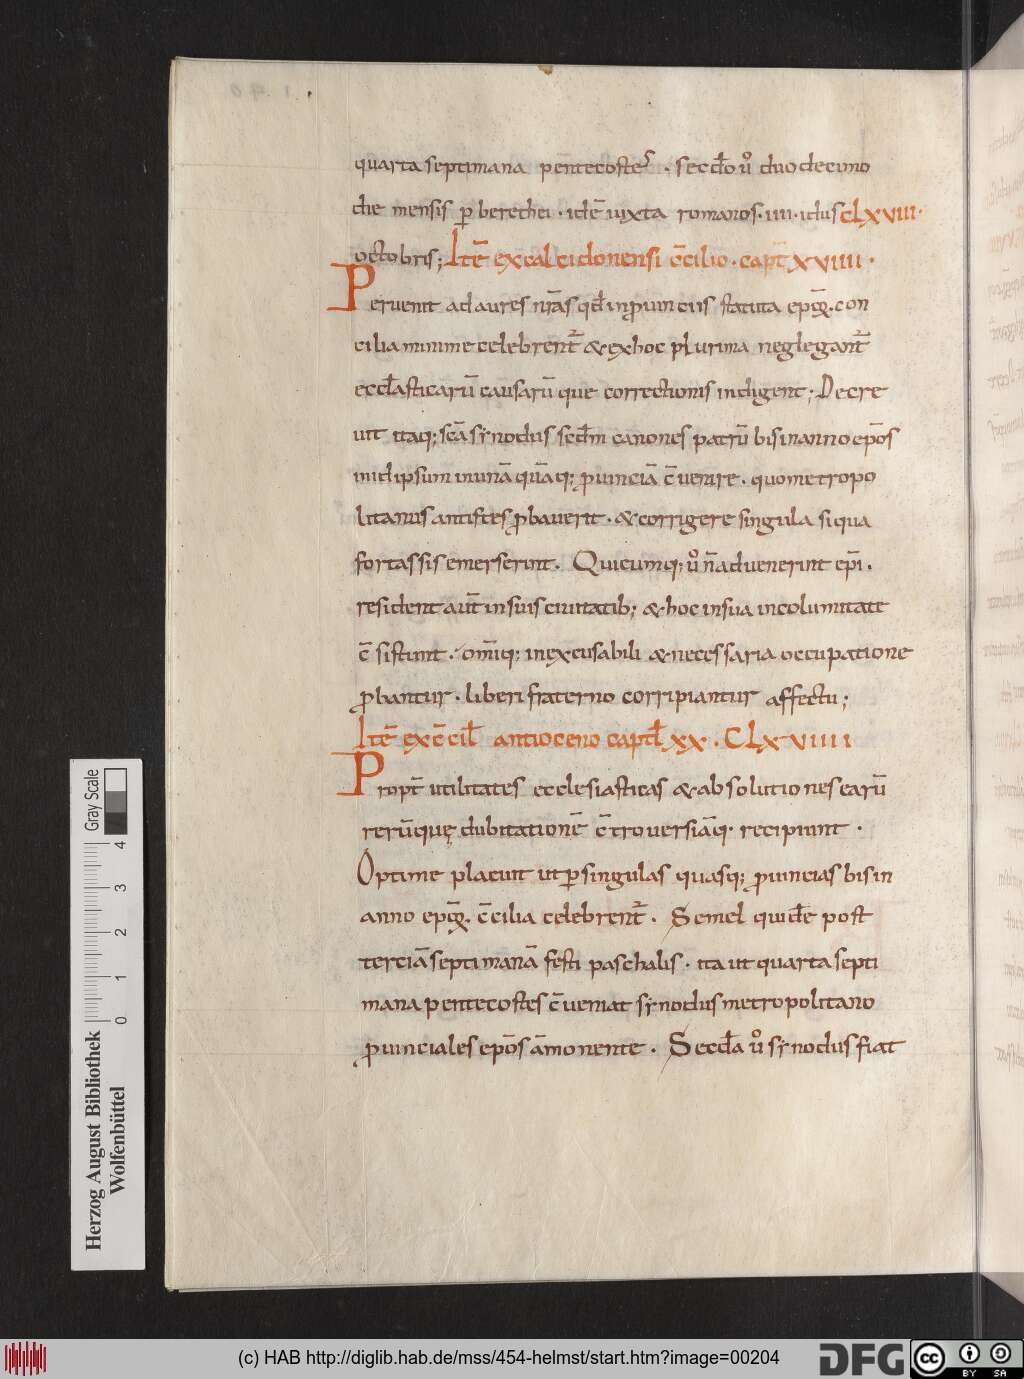 quarta septimana pentecostes . secd̄o ů duodecimo
die mensis ꝑ berethei · idē iuxta romanos · iiii · idus CLXVIII ·
octobris; Itē ex calcidonensi c̄cilio · capt̄ XVIIII ·
Peruenit ad aures nr̄as qđ in ꝓuinciis statuta epōꝝ. con
cilia minime celebrent᷑ & ex hoc plurima neglegant᷑
eccƚasticarū causarū que correctionis indigent; Decre
uit itaq; sc̄a synodus secđm canones patrū bis in anno ep̄os
in id ipsum in unā quāq; ꝓuinciā c̄uenire · quo metropo
litanus antistes ꝓbauerit · & corrigere singula si qua
fortassis emerserint. Quicumq; ů n̄ aduenerint ep̄i .
resident aut̄ in suis ciuitatib; & hoc in sua incolumitate
c̄sistunt · om̄iq; inexcusabili & necessaria occupatione
ꝓbantur · liberi fraterno corripiantur affectu;
Itē ex c̄ciƚ antioceno captƚ XX . CLXVIIII
Propt̄ utilitates ecclesiasticas & absolutiones earū
rerū quę dubitationē c̄trouersiāq· recipiunt ·
Optime placuit ut ꝑ singulas quasq; ꝓuincias bis in
anno epōꝝ. c̄cilia celebrent᷑ . Semel quidē post
terciā septimanā festi paschalis · ita ut quarta septi
mana pentecostes c̄ueniat synodus metropolitano
ꝓuinciales ep̄os āmonente . Secđa ů synodus fiat
Gray Scale
4
3
2
1
0
Herzog August Bibliothek
Wolfenbüttel
(c) HAB http://diglib.hab.de/mss/454-helmst/start.htm?image=00204
DFG
cc
BY SA